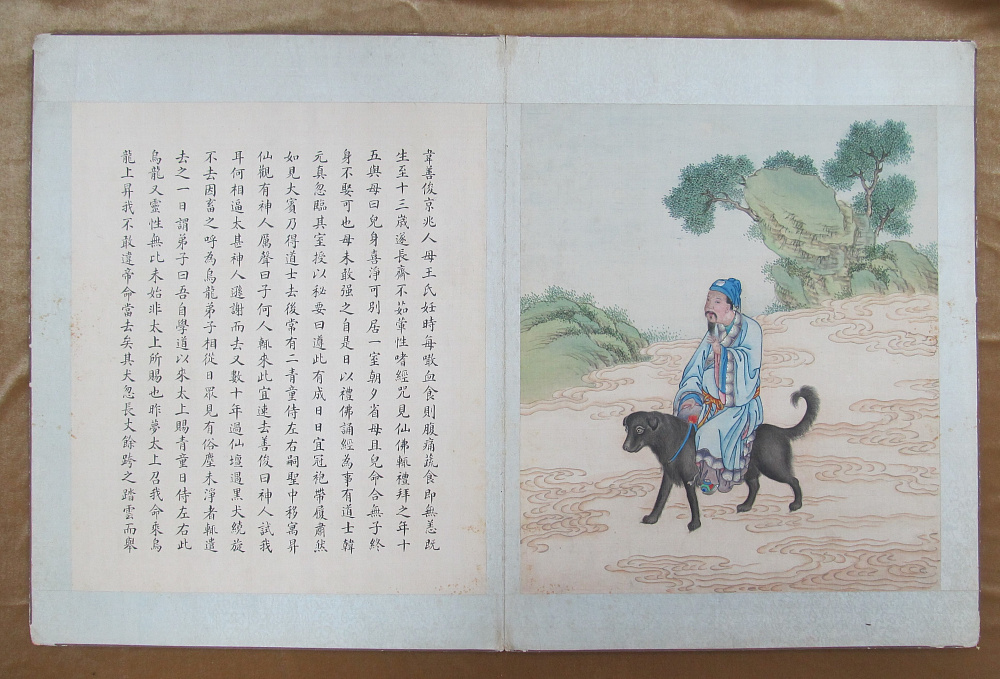 韋善俊京兆人母王氏妊時每噉血食則腹痛蔬食即無恙既
生至十三歲遂長齋不茹葷性嗜經咒見仙佛輒禮拜之年十
五與母曰兒身喜淨可別居一室朝夕省母且兒命合無子終
身不娶可也母未敢强之自是日以禮佛誦經為事有道士韓
元真忽臨其室授以秘要曰遵此有成日日宜冠袍帶履肅然
如見大賓乃得道士去後常有二青童侍左右嗣聖中移寓昇
仙觀有神人厲聲曰子何人輒來此宜速去善俊曰神人試我
耳何相逼太甚神人遜謝而去又數十年過仙壇遇黑犬繞旋
不去因畜之呼為烏龍弟子相從日眾見有俗塵未淨者輒遣
去之一日謂弟子曰吾自學道以來太上賜青童日侍左右此
烏龍又靈性無比未始非太上所賜也昨夢太上召我命來烏
龍上昇我不敢違帝命當去矣其犬忽長丈餘跨之踏雲而舉